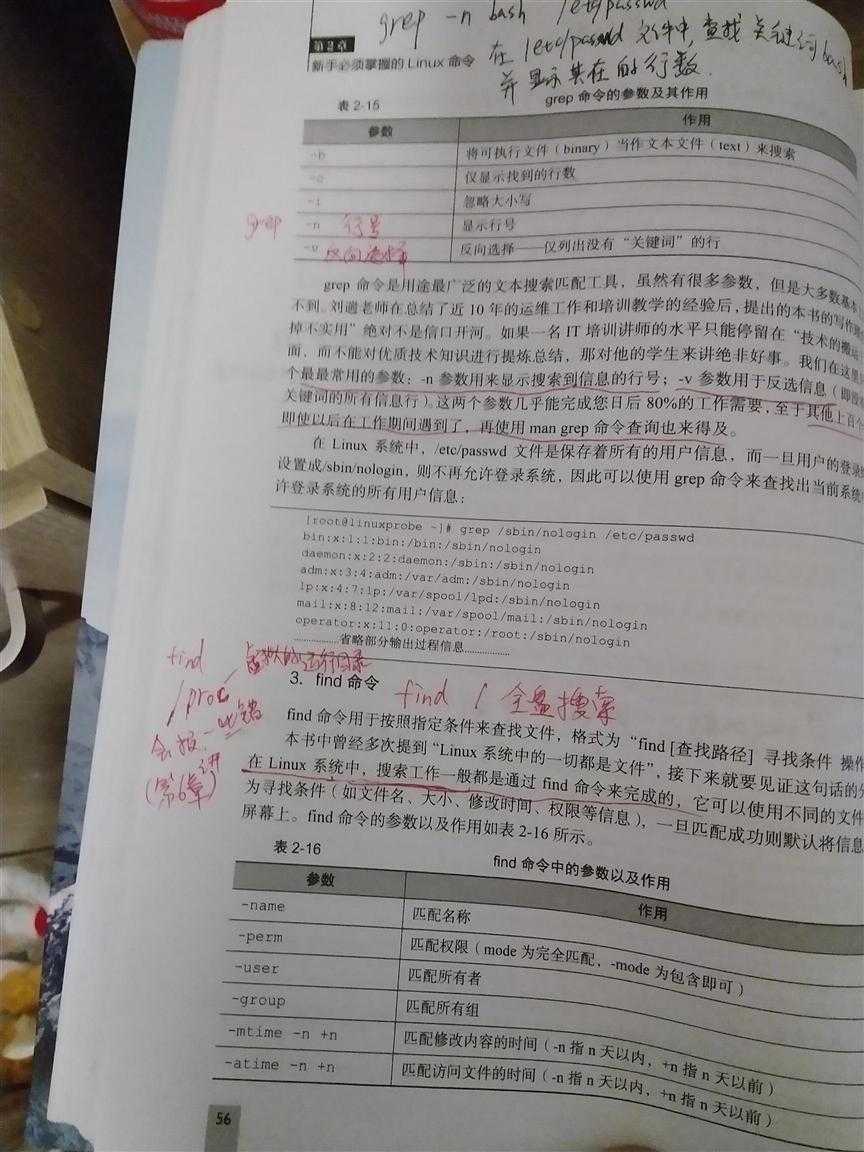 grep -n bash /etc/passwd
在 /etc/passwd 文件中, 查找关键词 bash
并显示其在的行数.
第2章
新手必须掌握的 Linux 命令
表 2-15
grep 命令的参数及其作用
参数 作用
-b 将可执行文件（binary）当作文本文件（text）来搜索
-c 仅显示找到的行数
-i 忽略大小写
grep -n 行号 显示行号
-v 反向选择 反向选择——仅列出没有“关键词”的行
grep 命令是用途最广泛的文本搜索匹配工具，虽然有很多参数，但是大多数基本
不到。刘遄老师在总结了近 10 年的运维工作和培训教学的经验后，提出的本书的写作
掉不实用”绝对不是信口开河。如果一名 IT 培训讲师的水平只能停留在“技术的搬运
面，而不能对优质技术知识进行提炼总结，那对他的学生来讲绝非好事。我们在这里
个最最常用的参数：-n 参数用来显示搜索到信息的行号；-v 参数用于反选信息（即没
关键词的所有信息行）。这两个参数几乎能完成您日后 80%的工作需要，至于其他上百个
即使以后在工作期间遇到了，再使用 man grep 命令查询也来得及。
在 Linux 系统中，/etc/passwd 文件是保存着所有的用户信息，而一旦用户的登录
设置成/sbin/nologin，则不再允许登录系统，因此可以使用 grep 命令来查找出当前系统
许登录系统的所有用户信息：
[root@linuxprobe ~]# grep /sbin/nologin /etc/passwd
bin:x:1:1:bin:/bin:/sbin/nologin
daemon:x:2:2:daemon:/sbin:/sbin/nologin
adm:x:3:4:adm:/var/adm:/sbin/nologin
lp:x:4:7:lp:/var/spool/lpd:/sbin/nologin
mail:x:8:12:mail:/var/spool/mail:/sbin/nologin
operator:x:11:0:operator:/root:/sbin/nologin
………………省略部分输出过程信息………………
find
/proc 虚拟的运行目录
会报一些错
(第6章讲)
3. find 命令 find / 全盘搜索
find 命令用于按照指定条件来查找文件，格式为“find [查找路径] 寻找条件 操作
本书中曾经多次提到“Linux 系统中的一切都是文件”，接下来就要见证这句话的分
在 Linux 系统中，搜索工作一般都是通过 find 命令来完成的，它可以使用不同的文件
为寻找条件（如文件名、大小、修改时间、权限等信息），一旦匹配成功则默认将信息
屏幕上。find 命令的参数以及作用如表 2-16 所示。
表 2-16
find 命令中的参数以及作用
参数 作用
-name 匹配名称
-perm 匹配权限（mode 为完全匹配，-mode 为包含即可）
-user 匹配所有者
-group 匹配所有组
-mtime -n +n 匹配修改内容的时间（-n 指 n 天以内，+n 指 n 天以前）
-atime -n +n 匹配访问文件的时间（-n 指 n 天以内，+n 指 n 天以前）
56